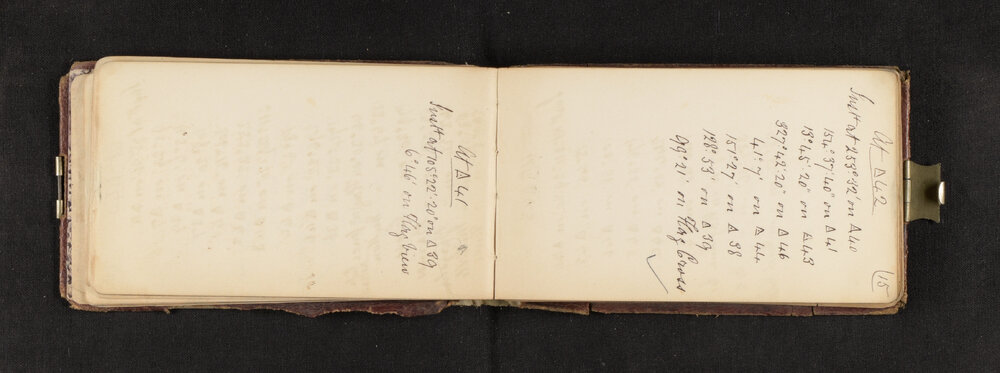 At Δ 41
Instt at 105° 22' 20" on Δ 39
6° 46' on Flag
15
At Δ 42
Instt at 253° 32' on Δ 40
154° 37' 40" on Δ 41
13° 45' 20" on Δ 43
327° 42' 20" on Δ 46
41° 7' on Δ 44
151° 27' on Δ 38
128° 53' on Δ 39
99° 21' on Flag Cross